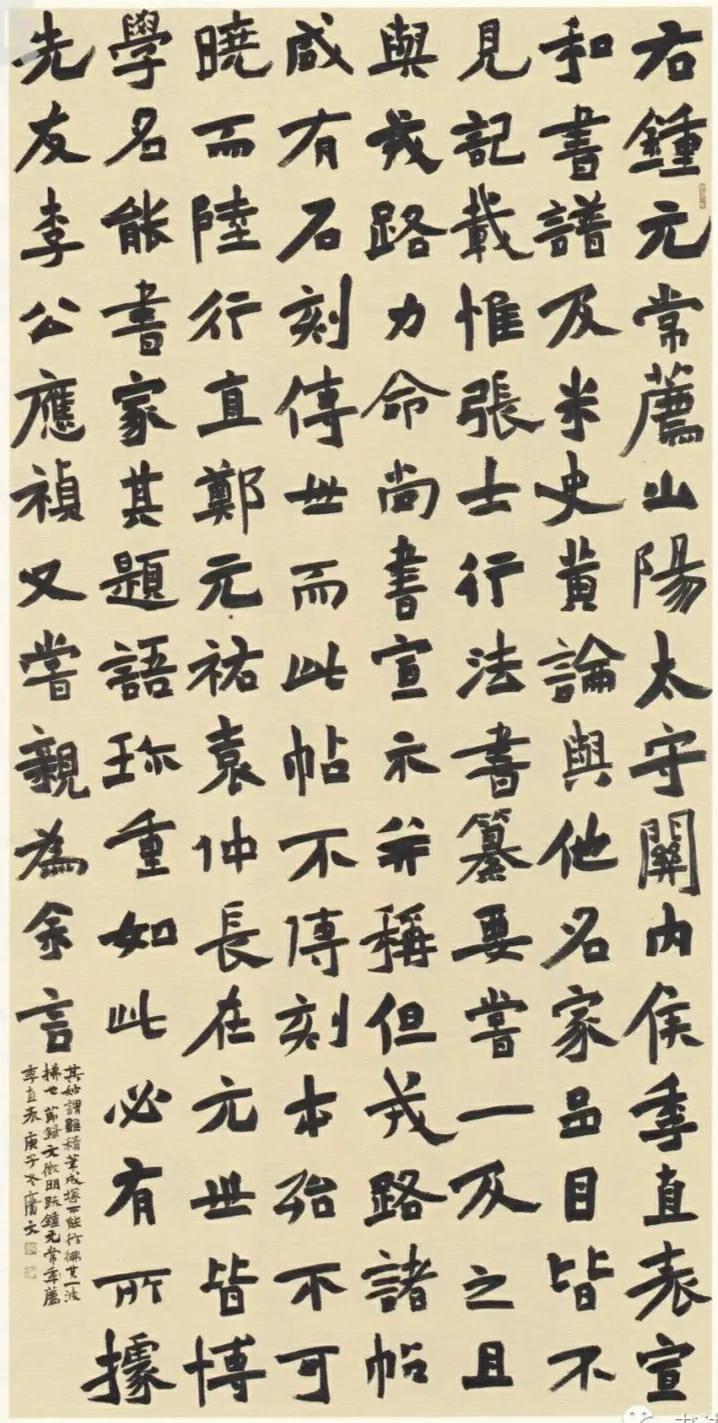 右鍾元常薦山陽太守關内侯季直表宣
和書譜及米史黄論與他名家品目皆不
見記載惟張士行法書纂要嘗一及之且
與戎路力命尚書宣示并稱但戎路諸帖
咸有石刻傳世而此帖不傳刻本殆不可
曉而陸行直鄭元祐袁仲長在元世皆博
學名能書家其題語珎重如此必有所據
先友李公應禎又嘗親為余言
其妙謂雖積筆成塚不能彷彿其一波
拂也節録文徵明跋鍾元常季薦
季直表庚子冬廣文